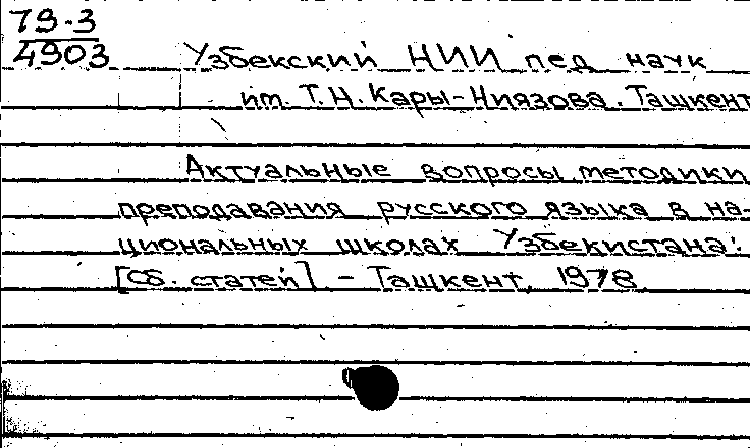 79-3
4903
Узбекский НИИ пед наук
им. Т.Н. Кары-Ниязова. Ташкент
Актуальные вопросы методики
преподавания русского языка в на-
циональных школах Узбекистана:
[Сб. статей] - Ташкент, 1978